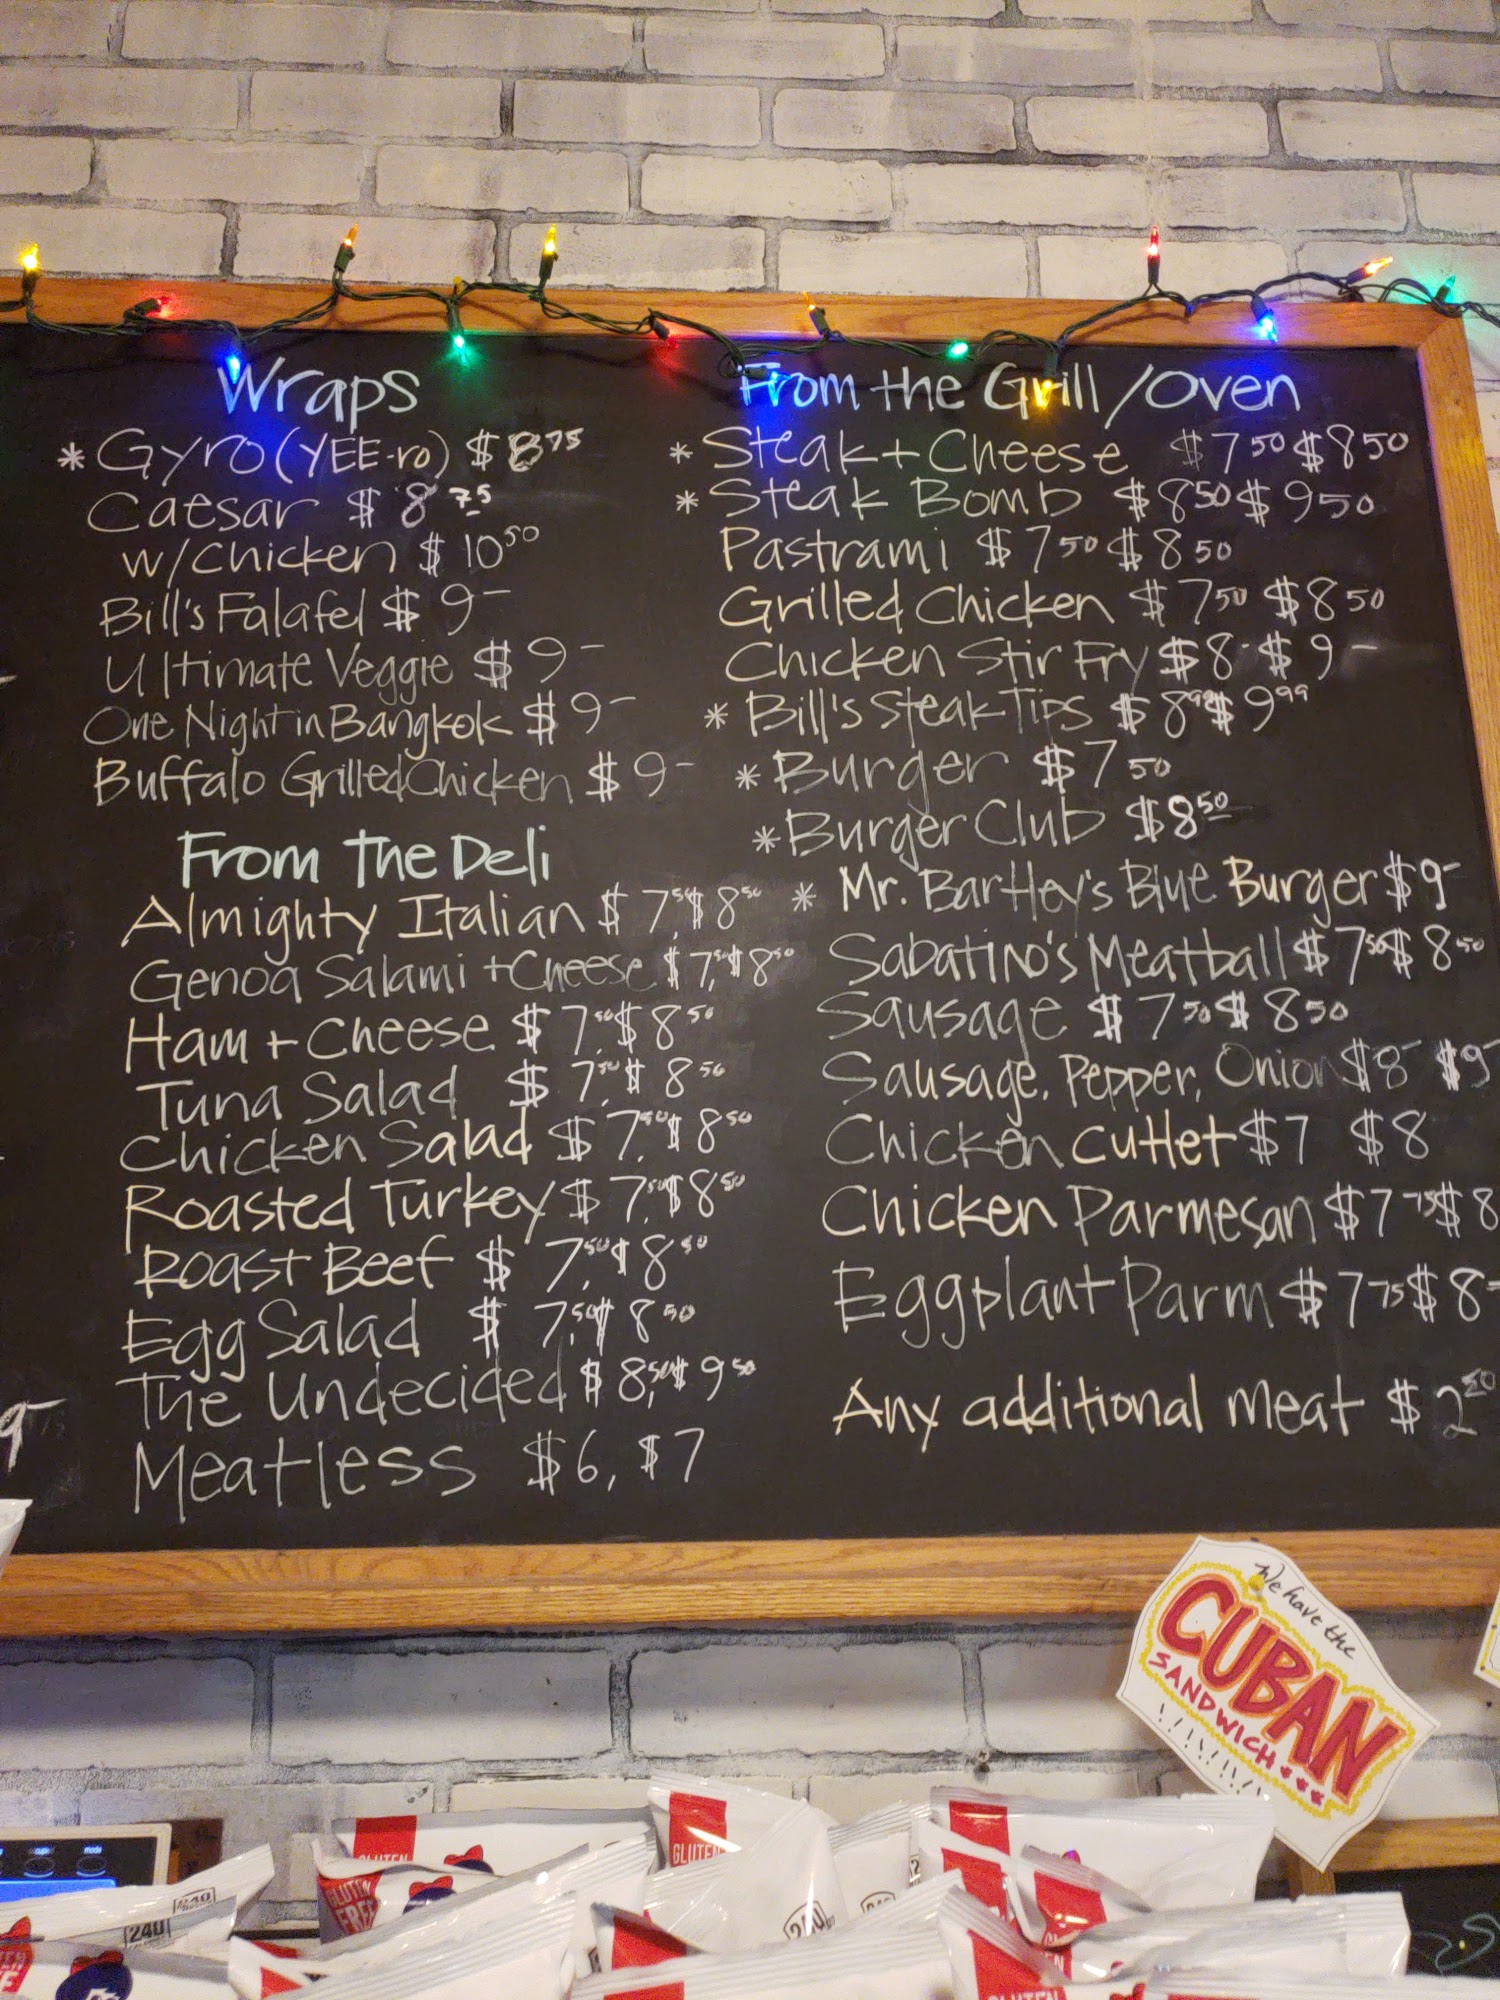 Wraps
* Gyro (YEE-ro) $8 75
Caesar $8 75
w/Chicken $10 50
Bill's Falafel $9-
Ultimate Veggie $9-
One Night in Bangkok $9-
Buffalo Grilled Chicken $9-
From The Deli
Almighty Italian $7.50 $8 50
Genoa Salami + Cheese $7.50 $8 50
Ham + Cheese $7.50 $8 50
Tuna Salad $7.50 $8 50
Chicken Salad $7.50 $8 50
Roasted Turkey $7.50 $8 50
Roast Beef $7.50 $8 50
Egg Salad $7.50 $8 50
The Undecided $8.50 $9 50
Meatless $6, $7
From the Grill/Oven
* Steak + Cheese $7 50 $8 50
* Steak Bomb $8 50 $9 50
Pastrami $7 50 $8 50
Grilled Chicken $7 50 $8 50
Chicken Stir Fry $8- $9-
* Bill's Steak Tips $8 99 $9 99
* Burger $7 50
* Burger Club $8 50
* Mr. Bartley's Blue Burger $9-
Sabatino's Meatball $7 50 $8 50
Sausage $7 50 $8 50
Sausage, Pepper, Onion $8- $9-
Chicken Cutlet $7 $8
Chicken Parmesan $7 75 $8
Eggplant Parm $7 75 $8-
Any additional meat $2 50
9-
We have the
CUBAN
SANDWICH...
GLUTEN
GLUTEN
GLUTEN
FREE
240
240
240
GLUTEN
GLUTEN